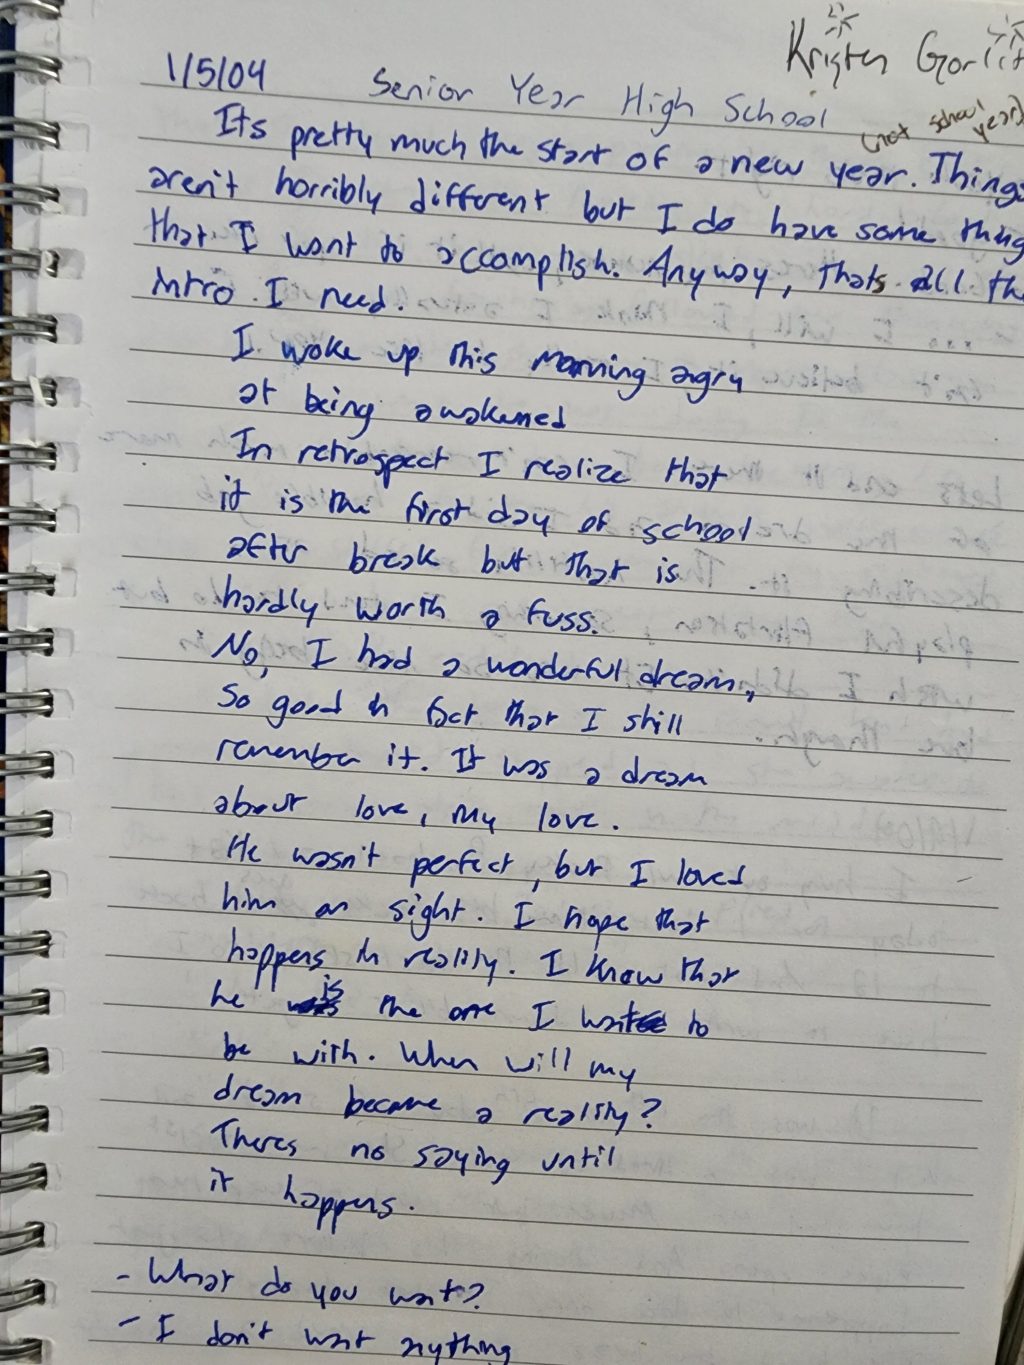 Kristen Gorlit
1/5/04 Senior Year High School
(not school year)
Its pretty much the start of a new year. Things
aren't horribly different but I do have some thing
that I want to accomplish. Anyway, thats all th
intro I need.
I woke up this morning agry
at being awakened
In retrospect I realize that
it is the first day of school
after break but that is
hardly worth a fuss.
No, I had a wonderful dream,
So good in fact that I still
remember it. It was a dream
about love, my love.
He wasn't perfect, but I loved
him on sight. I hope that
happens in reality. I know that
he is the one I wat to
be with. When will my
dream become a reality?
Theres no saying until
it happens.
- What do you want?
- I don't want anything